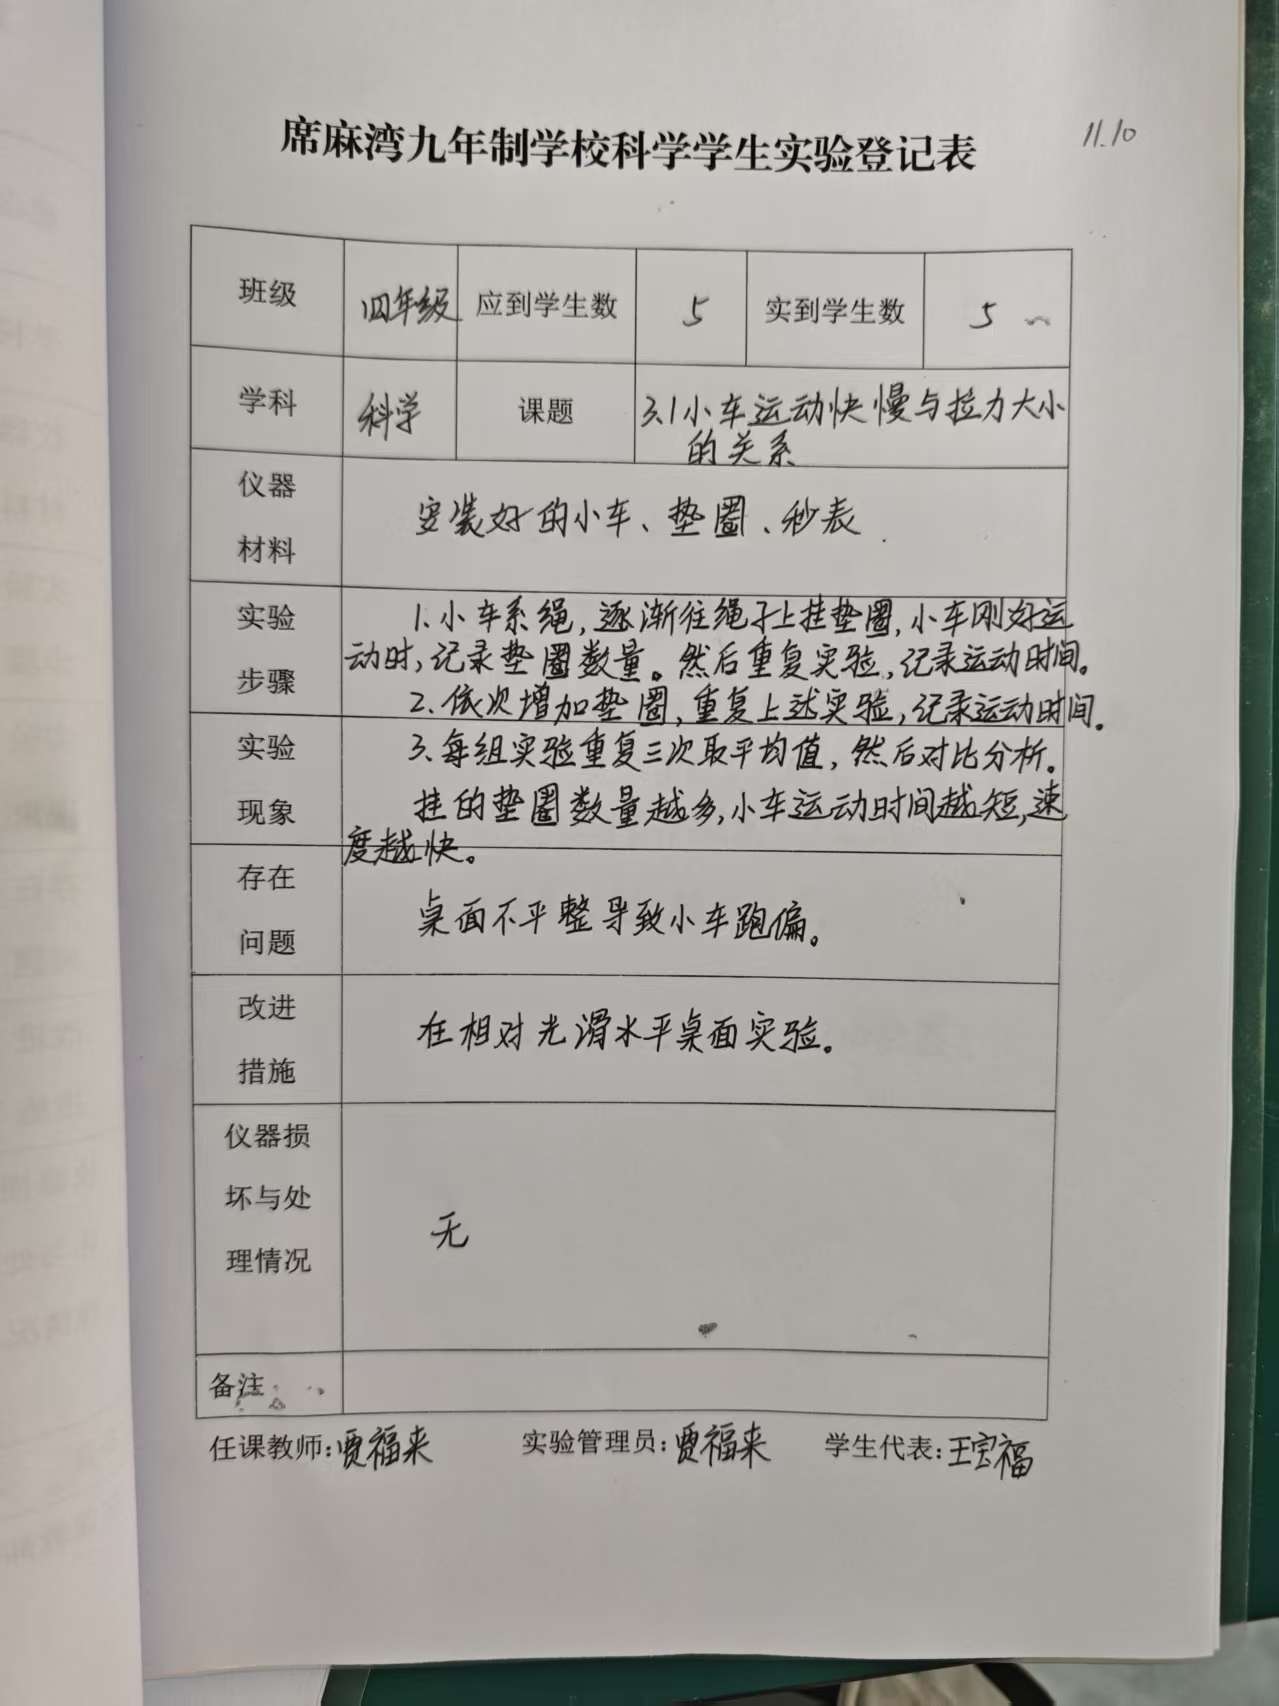 席麻湾九年制学校科学学生实验登记表
11.10
班级 四年级 应到学生数 5 实到学生数 5
学科 科学 课题 3.1小车运动快慢与拉力大小
的关系
仪器
材料
安装好的小车、垫圈、秒表
实验
步骤
1.小车系绳,逐渐往绳子上挂垫圈,小车刚好运
动时,记录垫圈数量。然后重复实验,记录运动时间。
2.依次增加垫圈,重复上述实验,记录运动时间。
实验
现象
3.每组实验重复三次取平均值,然后对比分析。
挂的垫圈数量越多,小车运动时间越短,速
度越快。
存在
问题
桌面不平整导致小车跑偏。
改进
措施
在相对光滑水平桌面实验。
仪器损
坏与处
理情况
无
备注
任课教师:贾福来 实验管理员:贾福来 学生代表:王宝福